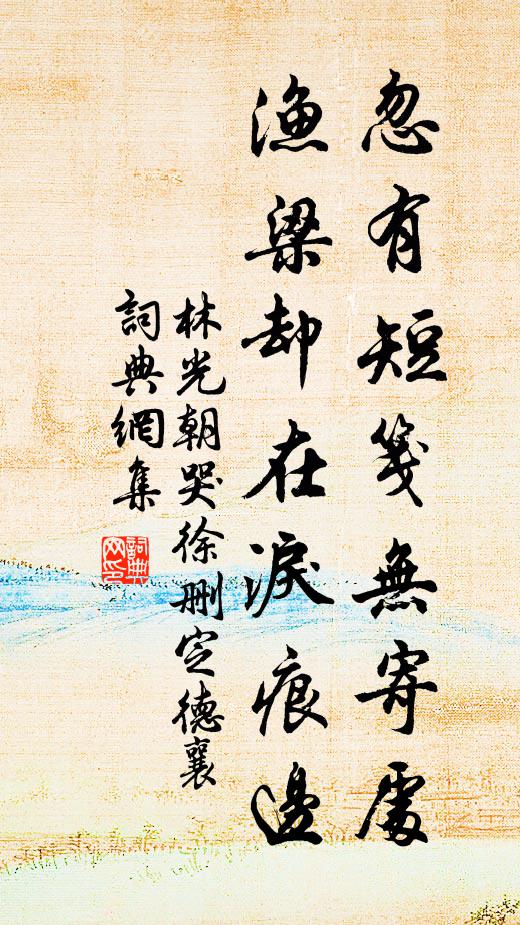 忽有短箋無寄處
漁梁却在淚痕邊
林光朝哭徐删定德襄
詞典網集
詞典网印